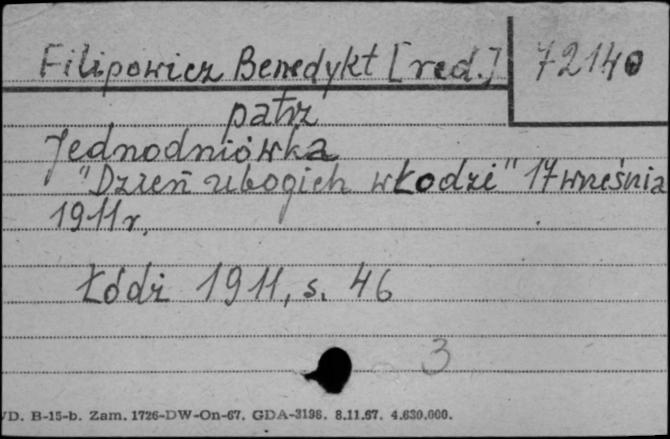 Filipowicz Benedykt [red.] 72140
patrz
Jednodniówka
"Dzień ubogich w Łodzi" 17 września
1911 r.
Łódź 1911, s. 46
3
D. B-15-b. Zam. 1726-DW-On-67. GDA-3198. 8.11.67. 4.630.000.